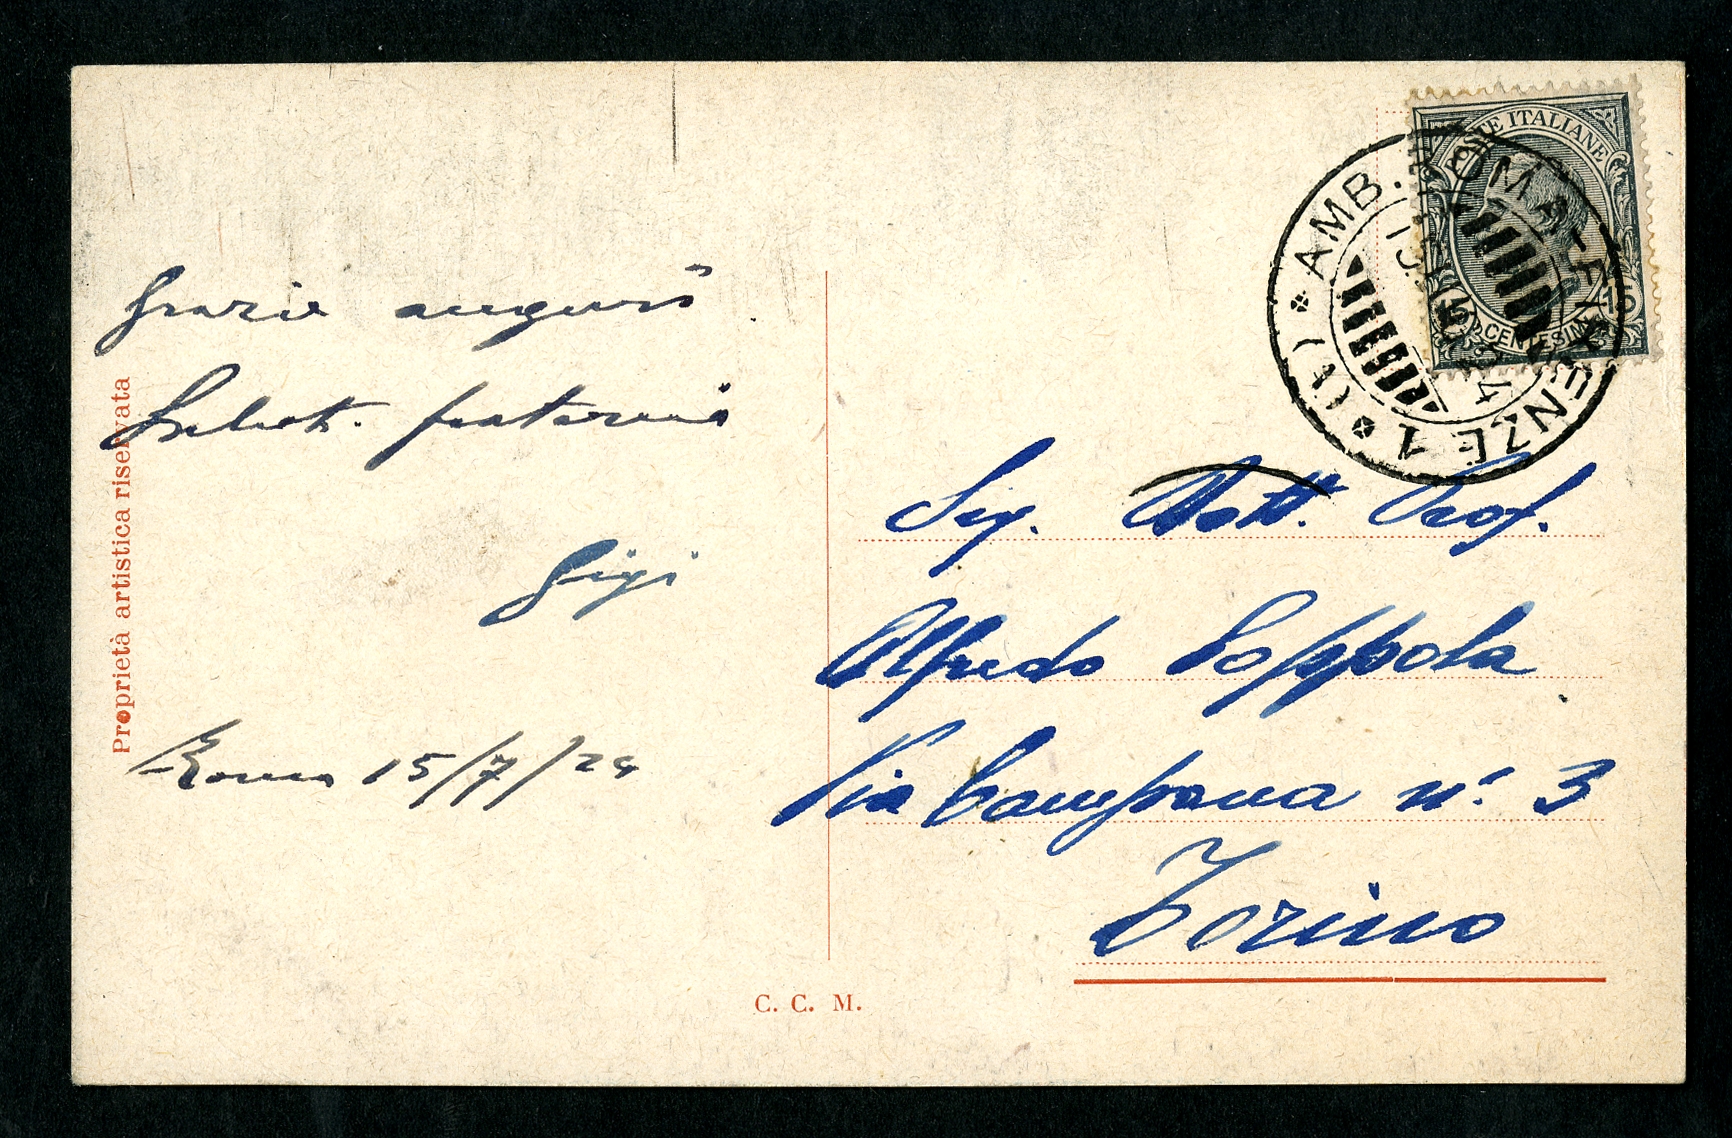 Grazie auguri
Saluti fraterni
Gigi
Roma 15/7/24
Proprietà artistica riservata
C. C. M.
POSTE ITALIANE
15 15
CENTESIMI
AMB. ROMA-FIRENZE 1 (V)
Sig. Dott. Prof.
Alfredo Coppola
Via Campana n. 3
Torino